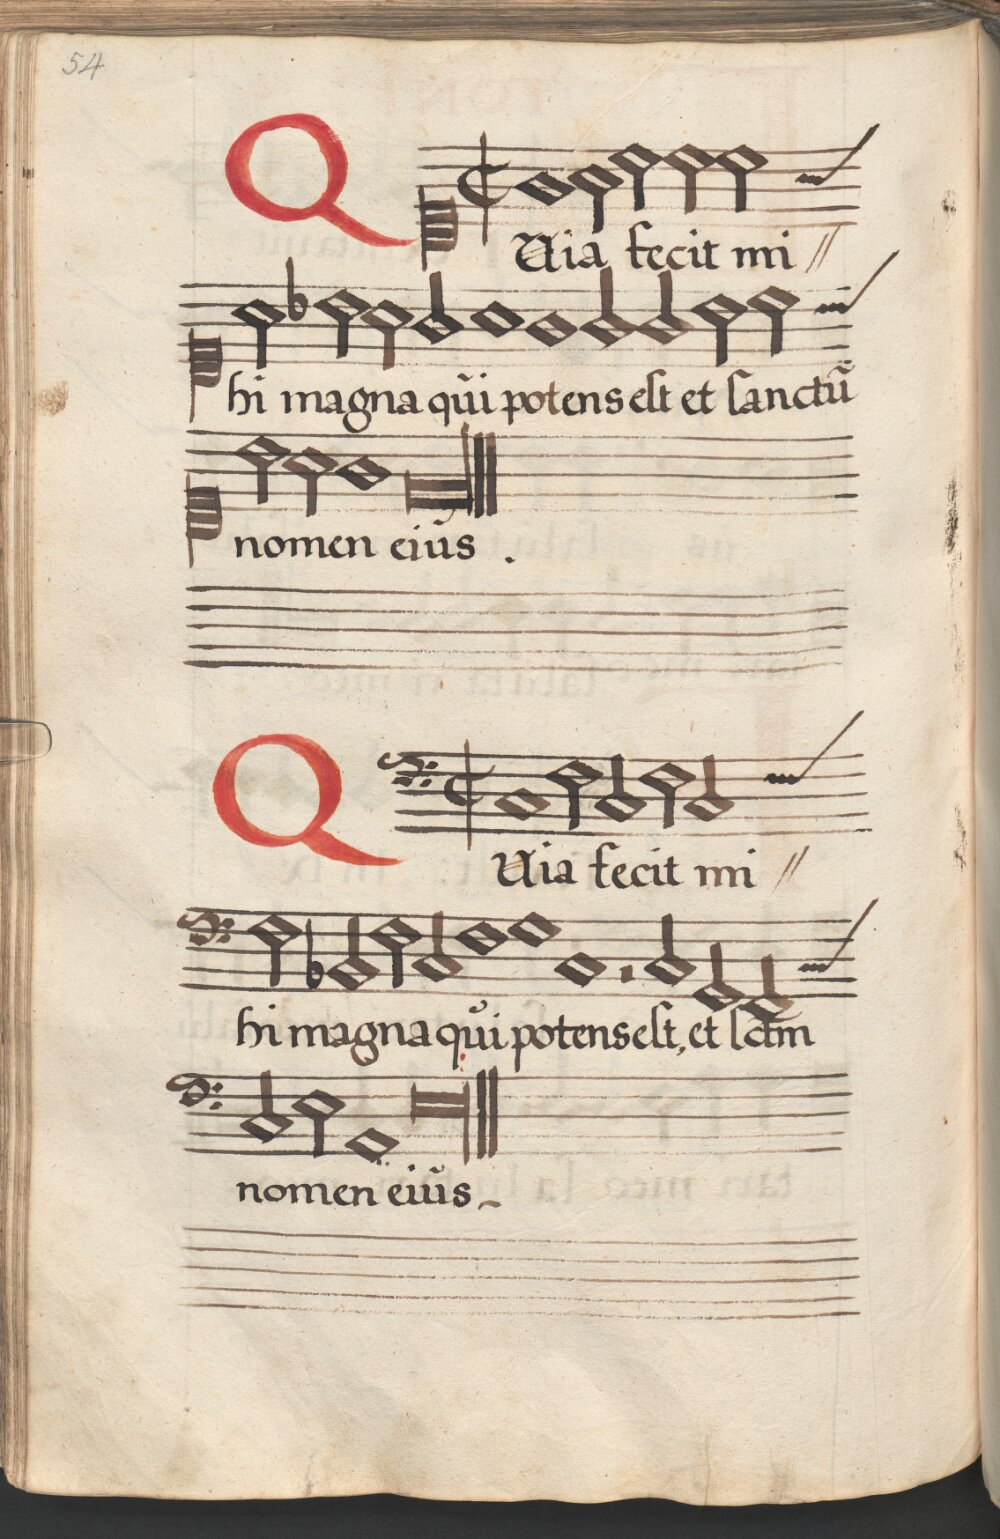 54
Quia fecit mi //
hi magna qũi potens est et sanctũ
nomen eiũs .
Quia fecit mi //
hi magna qũi potens est, et sctm̃
nomen eiũs .